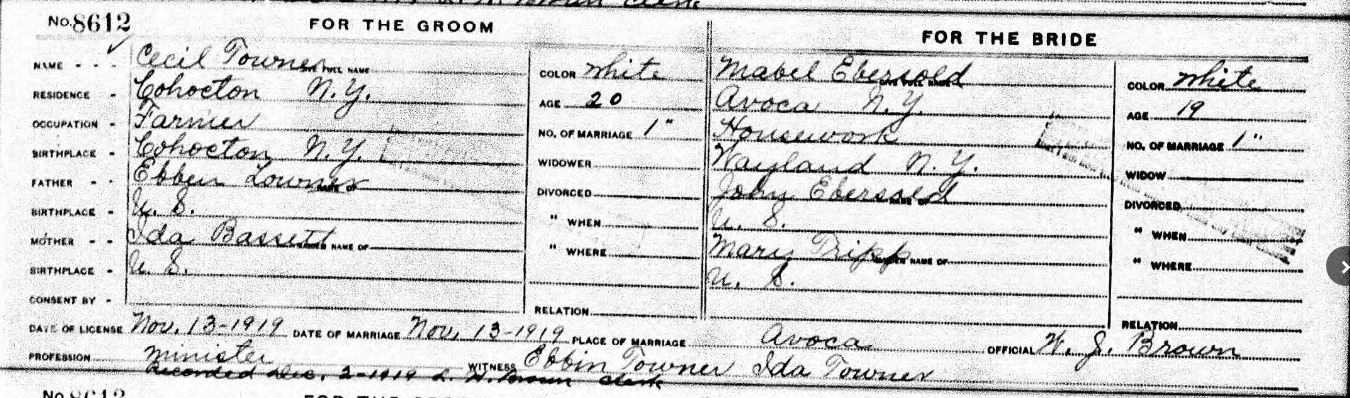 No. 8612 FOR THE GROOM FOR THE BRIDE
NAME - - - Cecil Towner GIVE FULL NAME COLOR white Mabel Ebersold GIVE FULL NAME COLOR white
RESIDENCE - Cohocton N.Y. AGE 20 Avoca N.Y. AGE 19
OCCUPATION - Farmer NO. OF MARRIAGE 1" Housework NO. OF MARRIAGE 1"
BIRTHPLACE - Cohocton, N.Y. WIDOWER Wayland N.Y. WIDOW
FATHER - - Ebben Towner NAME OF DIVORCED John Ebersold NAME OF DIVORCED
BIRTHPLACE - U. S. " WHEN U. S. " WHEN
MOTHER - - Ida Bassett MAIDEN NAME OF " WHERE Mary Tripp MAIDEN NAME OF " WHERE
BIRTHPLACE - U. S. U. S.
CONSENT BY - RELATION RELATION
DATE OF LICENSE Nov. 13-1919 DATE OF MARRIAGE Nov. 13-1919 PLACE OF MARRIAGE Avoca OFFICIAL W. J. Brown
PROFESSION minister WITNESS Ebbin Towner Ida Towner
Recorded Dec. 2-1919 Brown Clerk
No. 8613